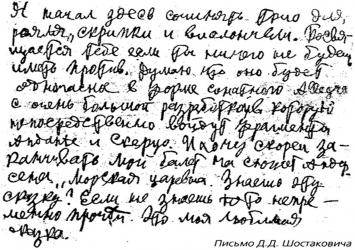 Я начал здесь сочинять Трио для
рояля, скрипки и виолончели. Посвя-
щается Тебе если Ты ничего не будешь
иметь против. Думаю что оно будет
одночастно в форме сонатного Allegro
с очень большой разработкой в которую
непосредственно войдут фрагменты
Анданте и Скерцо. И хочу скорей за-
канчивать мой балет на сюжет Андер-
сена „Морская царевна. Знаешь эту
сказку? Если не знаешь то то непре-
менно прочти. Это моя любимая
сказка.
Письмо Д.Д. Шостаковича